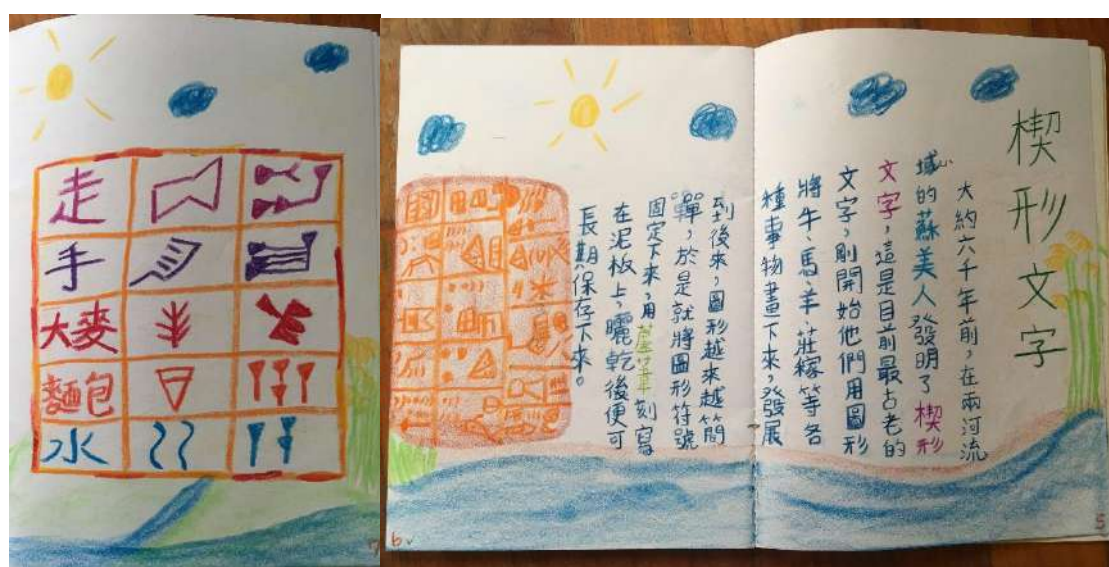 走
手
大麥
麵包
水
7
楔形文字
大約六千年前，在兩河流
域的蘇美人發明了楔形
文字，這是目前最古老的
文字，剛開始他們用圖形
將牛、馬、羊、莊稼等各
種事物畫下來，發展
5
到後來，圖形越來越簡
單，於是就將圖形符號
固定下來，用蘆葦刻寫
在泥板上，曬乾後便可
長期保存下來。
6